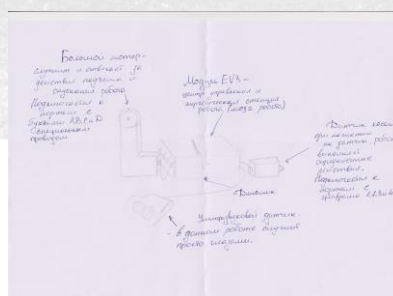 Большой мотор-
служит и отвечает за
действия поднятия и
опускания робота
Подключается к
портам с
буквами A,B,C и D
Специальным
проводом
Модуль EV3 -
центр управления и
энергетическая станция
робота (мозг робота)
Датчик касания
при нажатии
на датчик, робот
выполняет
определённые
действия.
Подключается к
портам с
цифрами 1,2,3 и 4
Динамик
Ультразвуковой датчик
- в данном роботе служит
просто глазами.